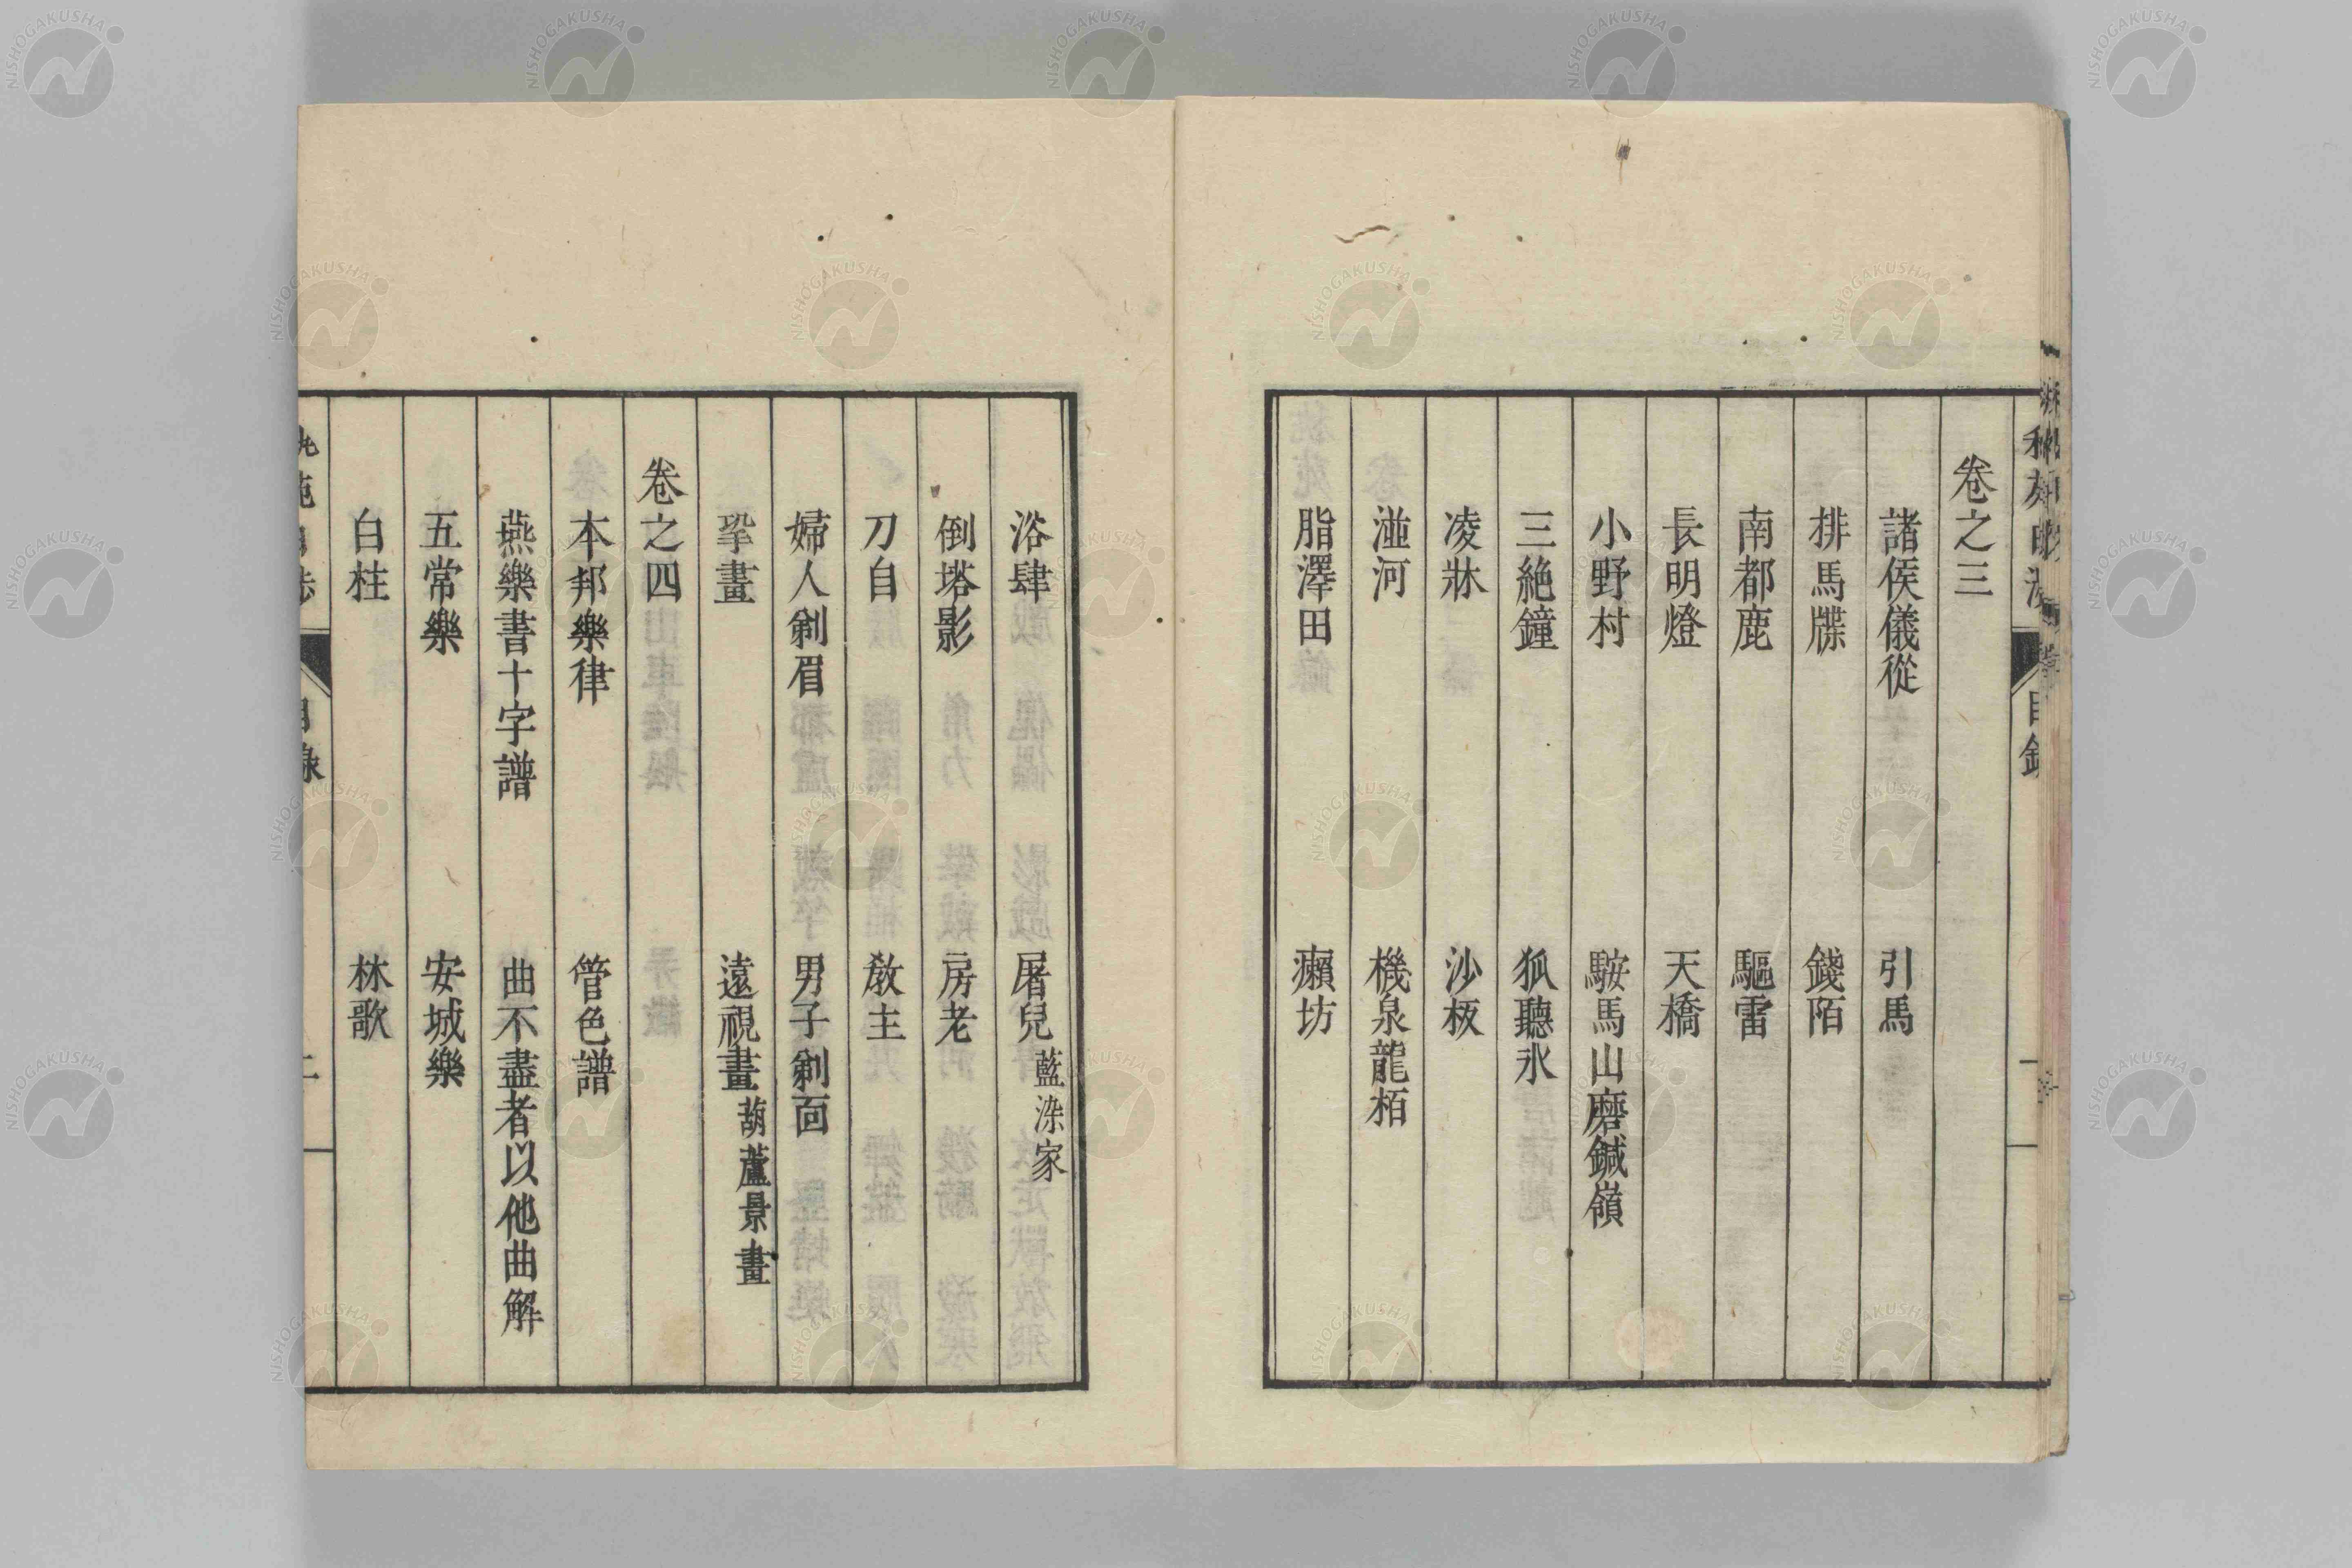 卷之三
諸侯儀從　引馬
排馬牒　錢陌
南都鹿　驅雷
長明燈　天橋
小野村　駿馬山磨鍼嶺
三絶鐘　狐聽氷
凌牀　沙板
湴河　機泉龍栢
脂澤田　癩坊
浴肆　屠兒藍染家
倒塔影　房老
刀自　教主
婦人剃眉　男子剃面
鞏畫　遠視畫葫蘆景畫
卷之四
本邦樂律　管色譜
燕樂書十字譜　曲不盡者以他曲解
五常樂　安城樂
白柱　林歌
目錄
NISHOGAKUSHA